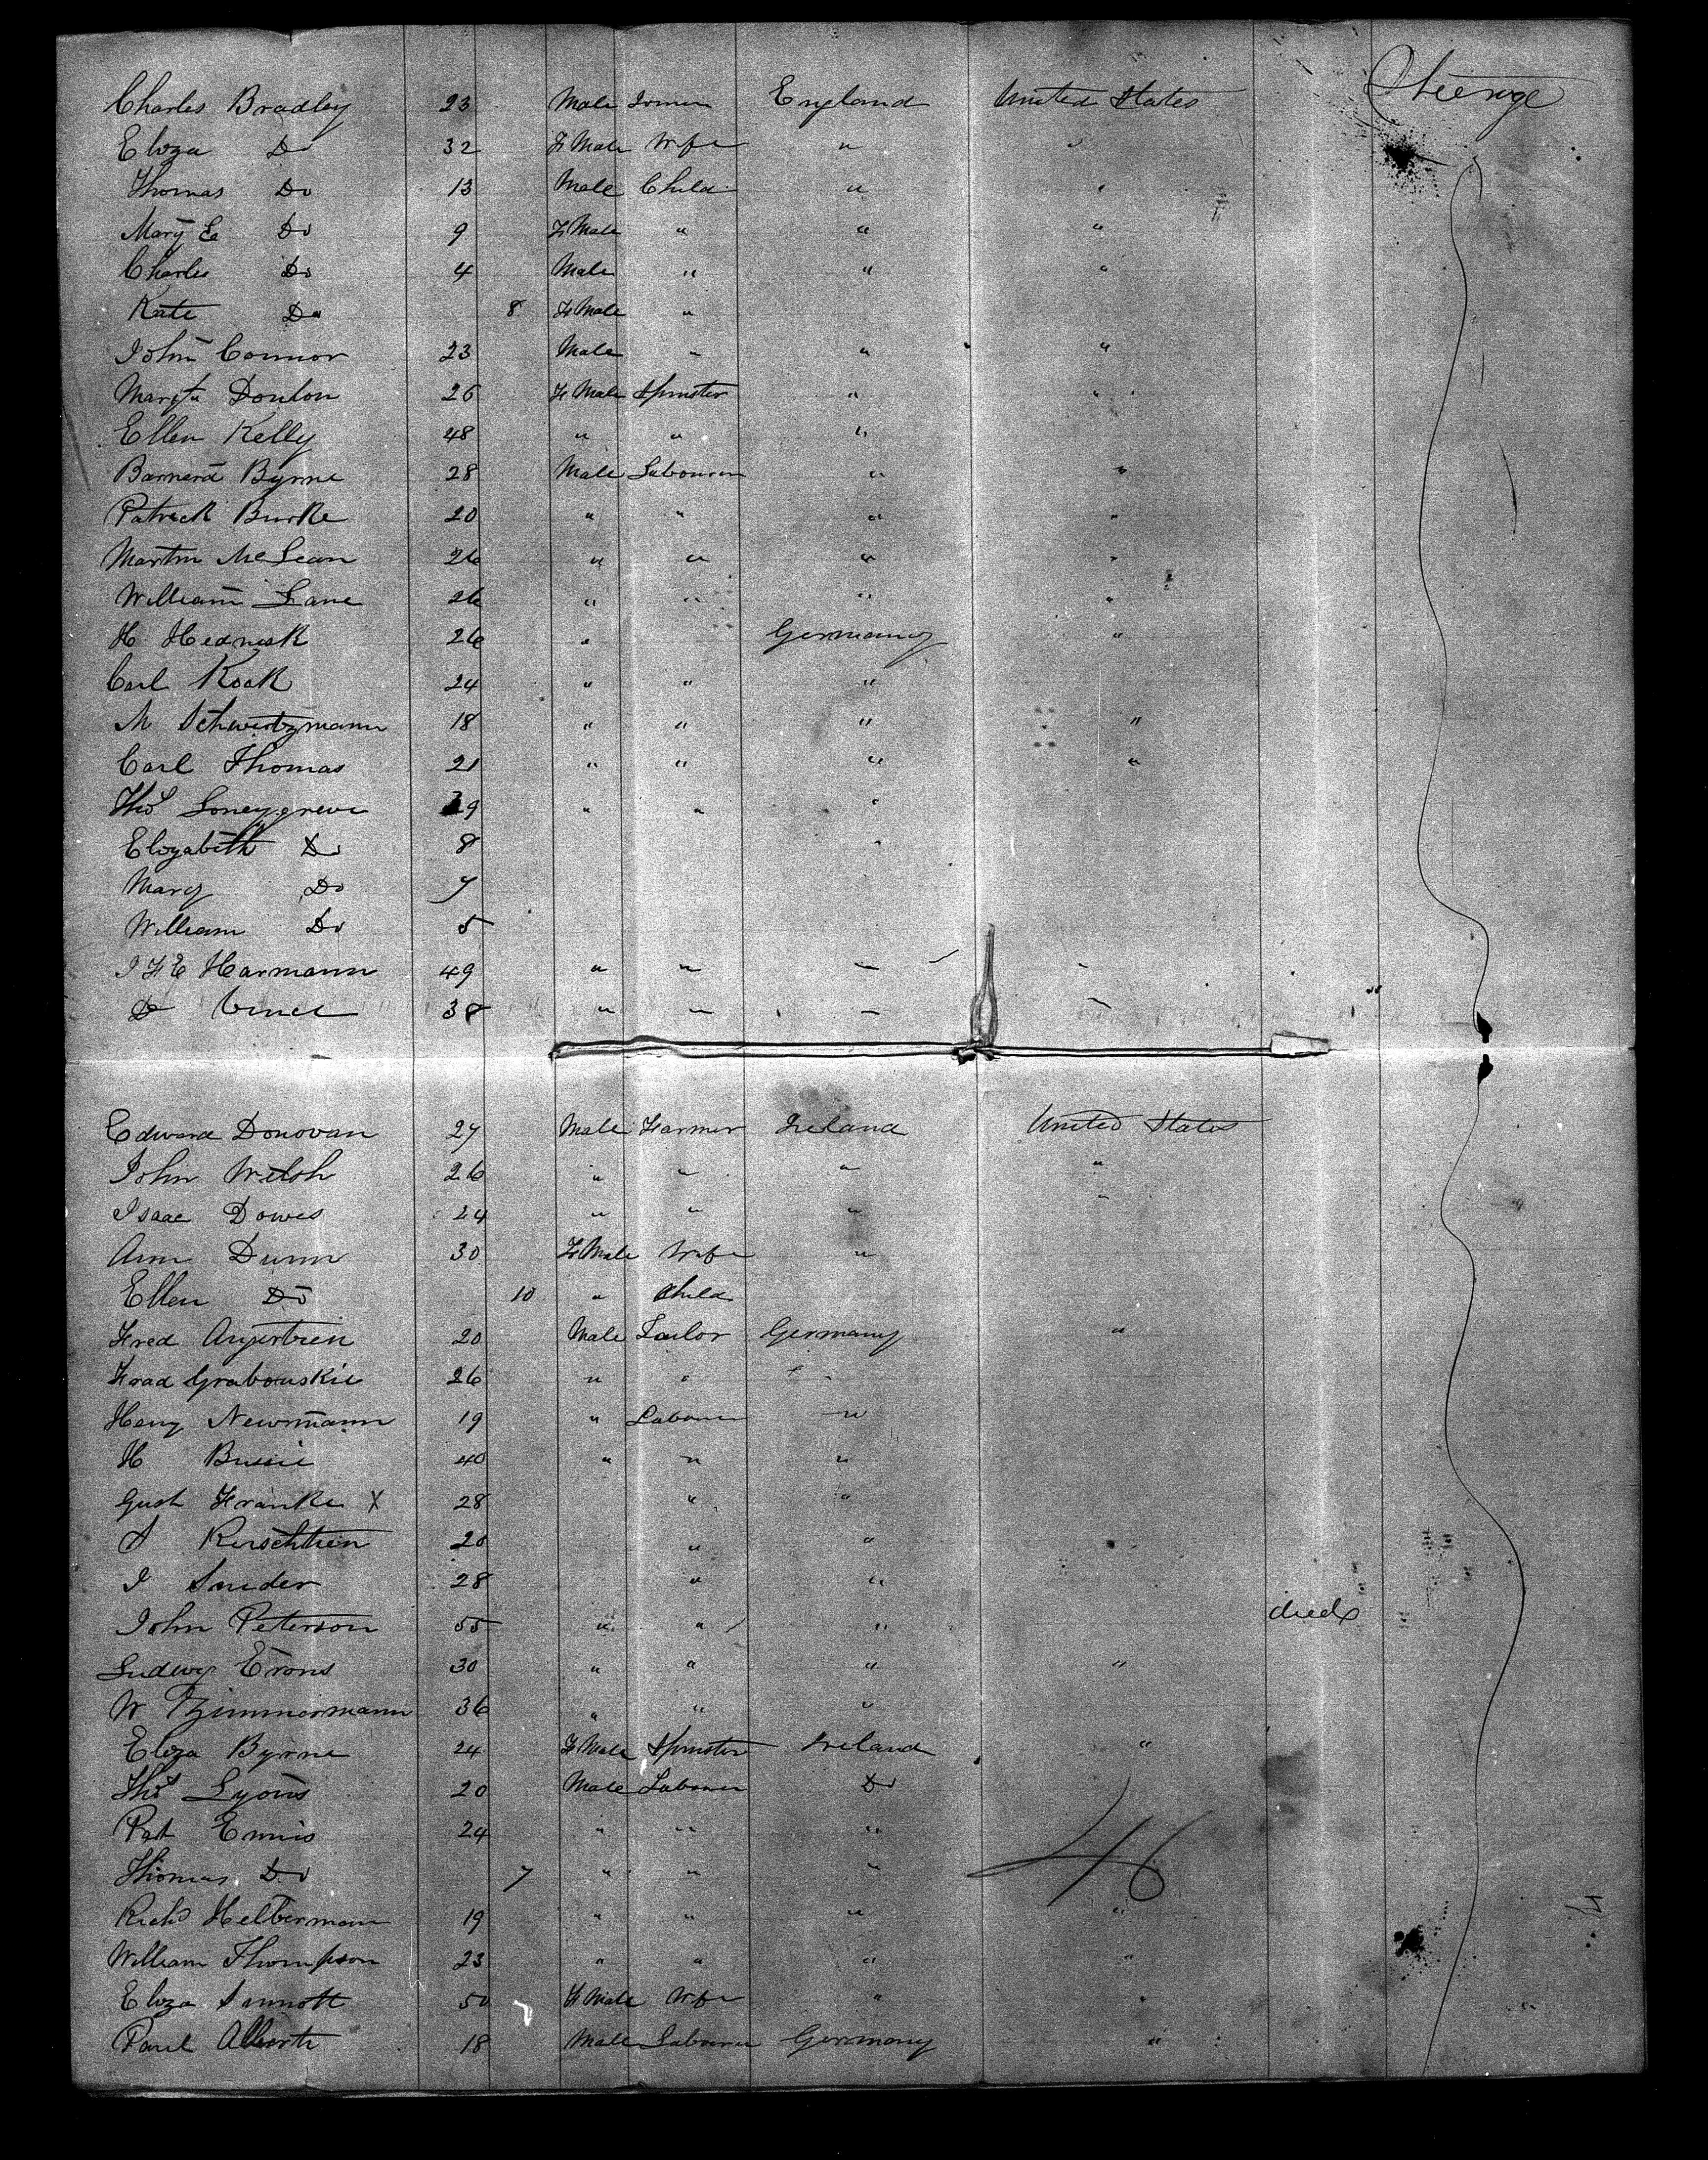 Charles Bradley 23 Male England United States Steerage
Eliza Do 32 FMale Wife " "
Thomas Do 13 Male Child " "
Mary E Do 9 FMale " " "
Charles Do 4 Male " " "
Kate Do 8 FMale "
John Connor 23 Male " " "
Donlon 26 FMale Spinster " "
Ellen Kelly 48 " " "
Barnard Byrne 28 Male Labourer " "
Patrick Burke 20 " " " "
Martin McLean 26 " " " "
William Lane 26 " " " "
H 26 " Germany "
Carl Koak 24 " " "
M Schwitzmann 18 " " " "
Carl Thomas 21 " " " "
Thos Loneygreve 29 " " "
Elizabeth Do 8 "
Mary Do 7
William Do 5
J F E Harmann 49 " " " "
D 38 " " " "
Edward Donovan 27 Male Farmer Ireland United States
John Welsh 26 " " " "
Isaac Dowes 24 " " " "
Ann Dunn 30 FMale Wife "
Ellen Do 10 " Child
Fred 20 Male Tailor Germany "
Frad Grabouskie 26 " " "
Heny Newmann 19 " Labourer "
H Bussie 40 " " "
Gust Franke X 28 " "
20 " "
J Snider 28 " "
John Peterson 55 " " " died
Ludwig Erons 30 " " " "
W Zimmermann 36 " " "
Eliza Byrne 24 FMale Spinster Ireland "
Thos Lyons 20 Male Labourer Do
Pat Ennis 24 " " "
Thomas Do 7 " " " 46
Richd Helbermann 19 " " " "
William Thompson 23 " " " "
Eliza Sinnott 50 FMale Wife " "
Paul Alberts 18 Male Labourer Germany "